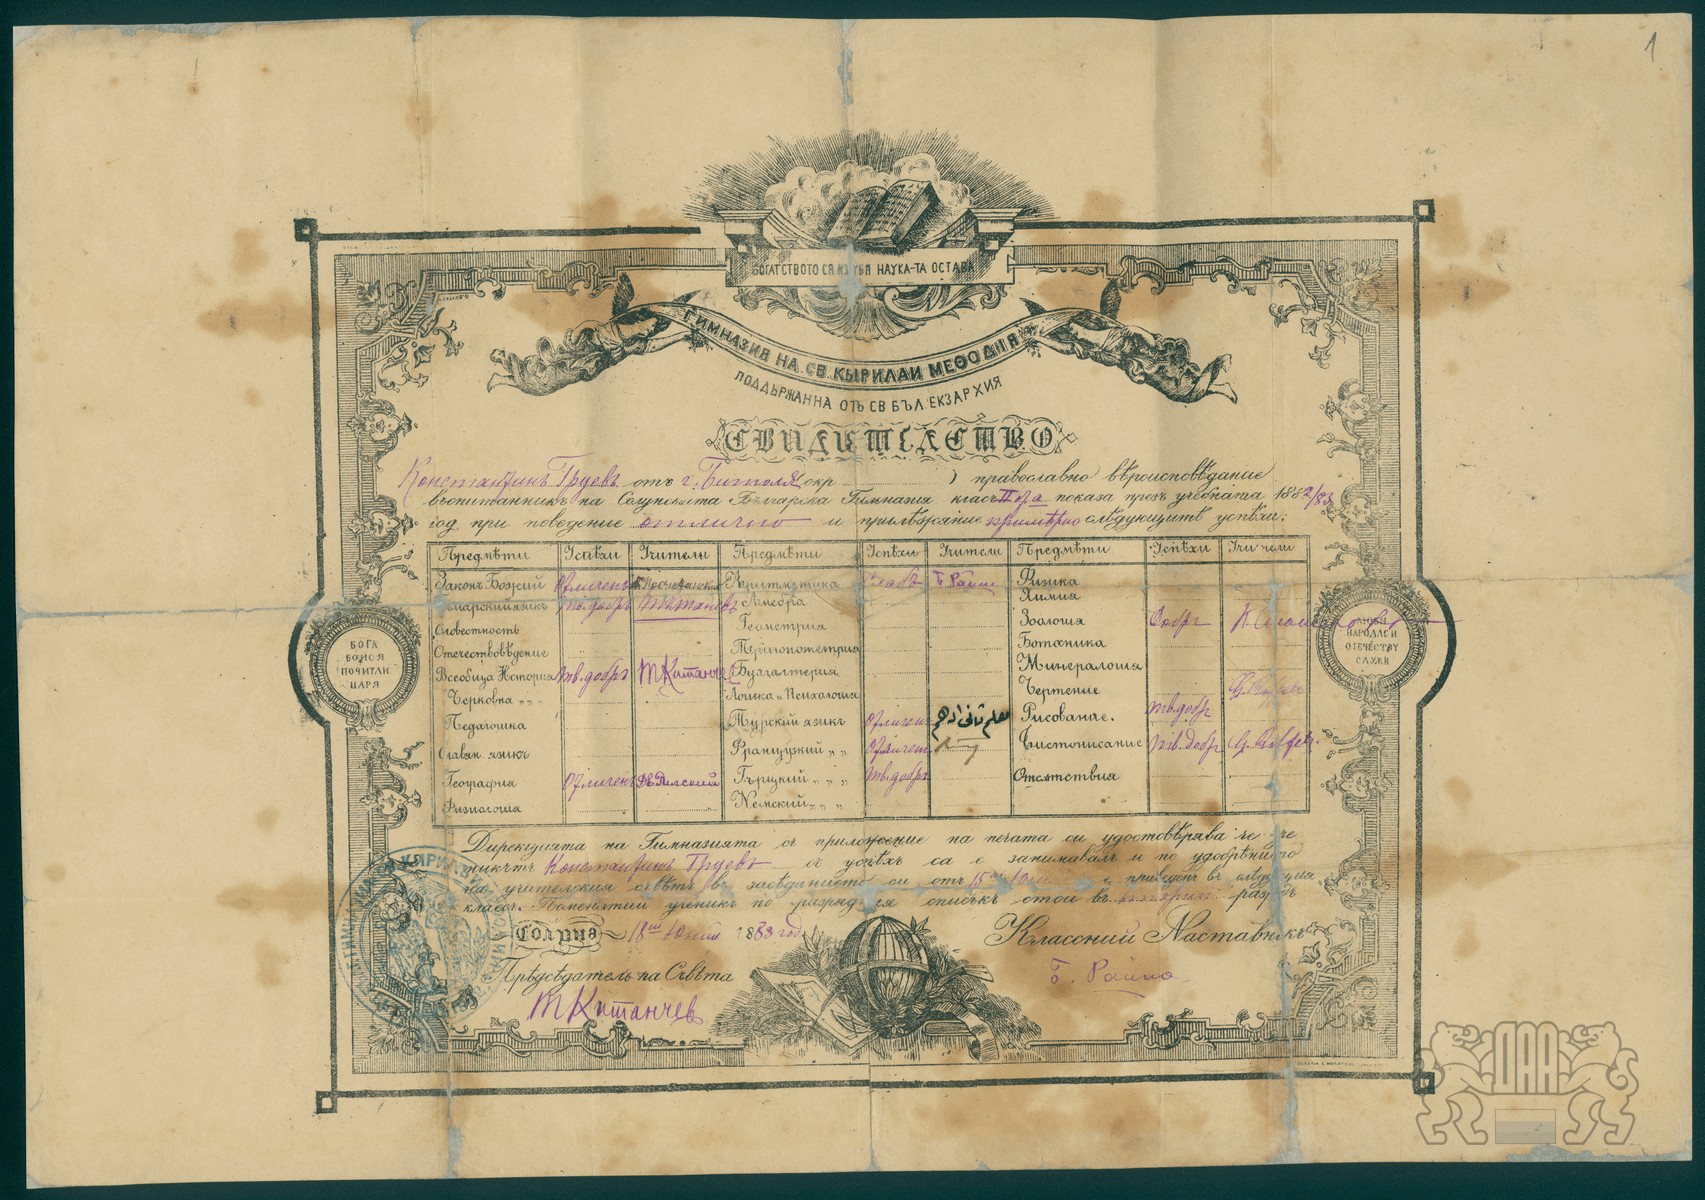 1
БОГАТСТВОТО СЯ ИЗУБЯ НАУКА-ТА ОСТАВА
ГИМНАЗИЯ НА СВ. КЫРИЛА И МЕѲОДИЯ
ПОДДЪРЖАННА ОТЪ СВ БЪЛ ЕКЗАРХИЯ
СВИДИТЕЛСТВО
Константинъ Груевъ отъ г. Битоля (окр ) православно вѣроисповѣдание
въспитанникъ на Солунската Българска Гимназия классъ показа презъ учебната 1882/83
год. при поведение отлично и прилѣжание примѣрно слѣдующитѣ успѣхи:
Предмѣти Успѣхи Учители Предмѣти Успѣхи Учители Предмѣти Успѣхи Учители
Законъ Божий Отличенъ Аритметика слабъ Б Райно Физика
Българский языкъ тв. добръ Китанчевъ Алгебра Химия
Словестность Геометрия Зоология Добръ
Отечествовѣдение Тригонометрия Ботаника
Всеобща История тв. добръ Т Китанчевъ Бухгалтерия Минералогия
Черковна " " Логика и Психология Чертение
Педагогика Турский языкъ Отличенъ Рисование. тв. добръ
Славян. языкъ Французкий " " Отличенъ Чистописание тв. добръ
География Отличенъ Гърцкий " " " тв. добръ Отсятствия
Физиология Немский " " "
Дирекцията на Гимназията съ приложение на печата си удостовѣрява че
никътъ Константинъ Груевъ съ успѣхъ са е занимавалъ и по удобрѣнието
на учителския съвѣтъ въ засѣдинието си отъ 15 е приведенъ въ слѣдующия
классъ. Поменятий ученикъ по разрядния списъкъ стои въ разрядъ
Солунъ 18ий Юний 1883 год.
Прѣдсѣдатель на Съвѣта
Т Китанчев
Классний Наставникъ
Б. Райно
БОГА
БОЙСЯ
ПОЧИТАЙ
ЦАРЯ
ЛЮБИ
НАРОДА СИ
ОТЕЧЕСТВУ
СЛУЖИ
ДАА